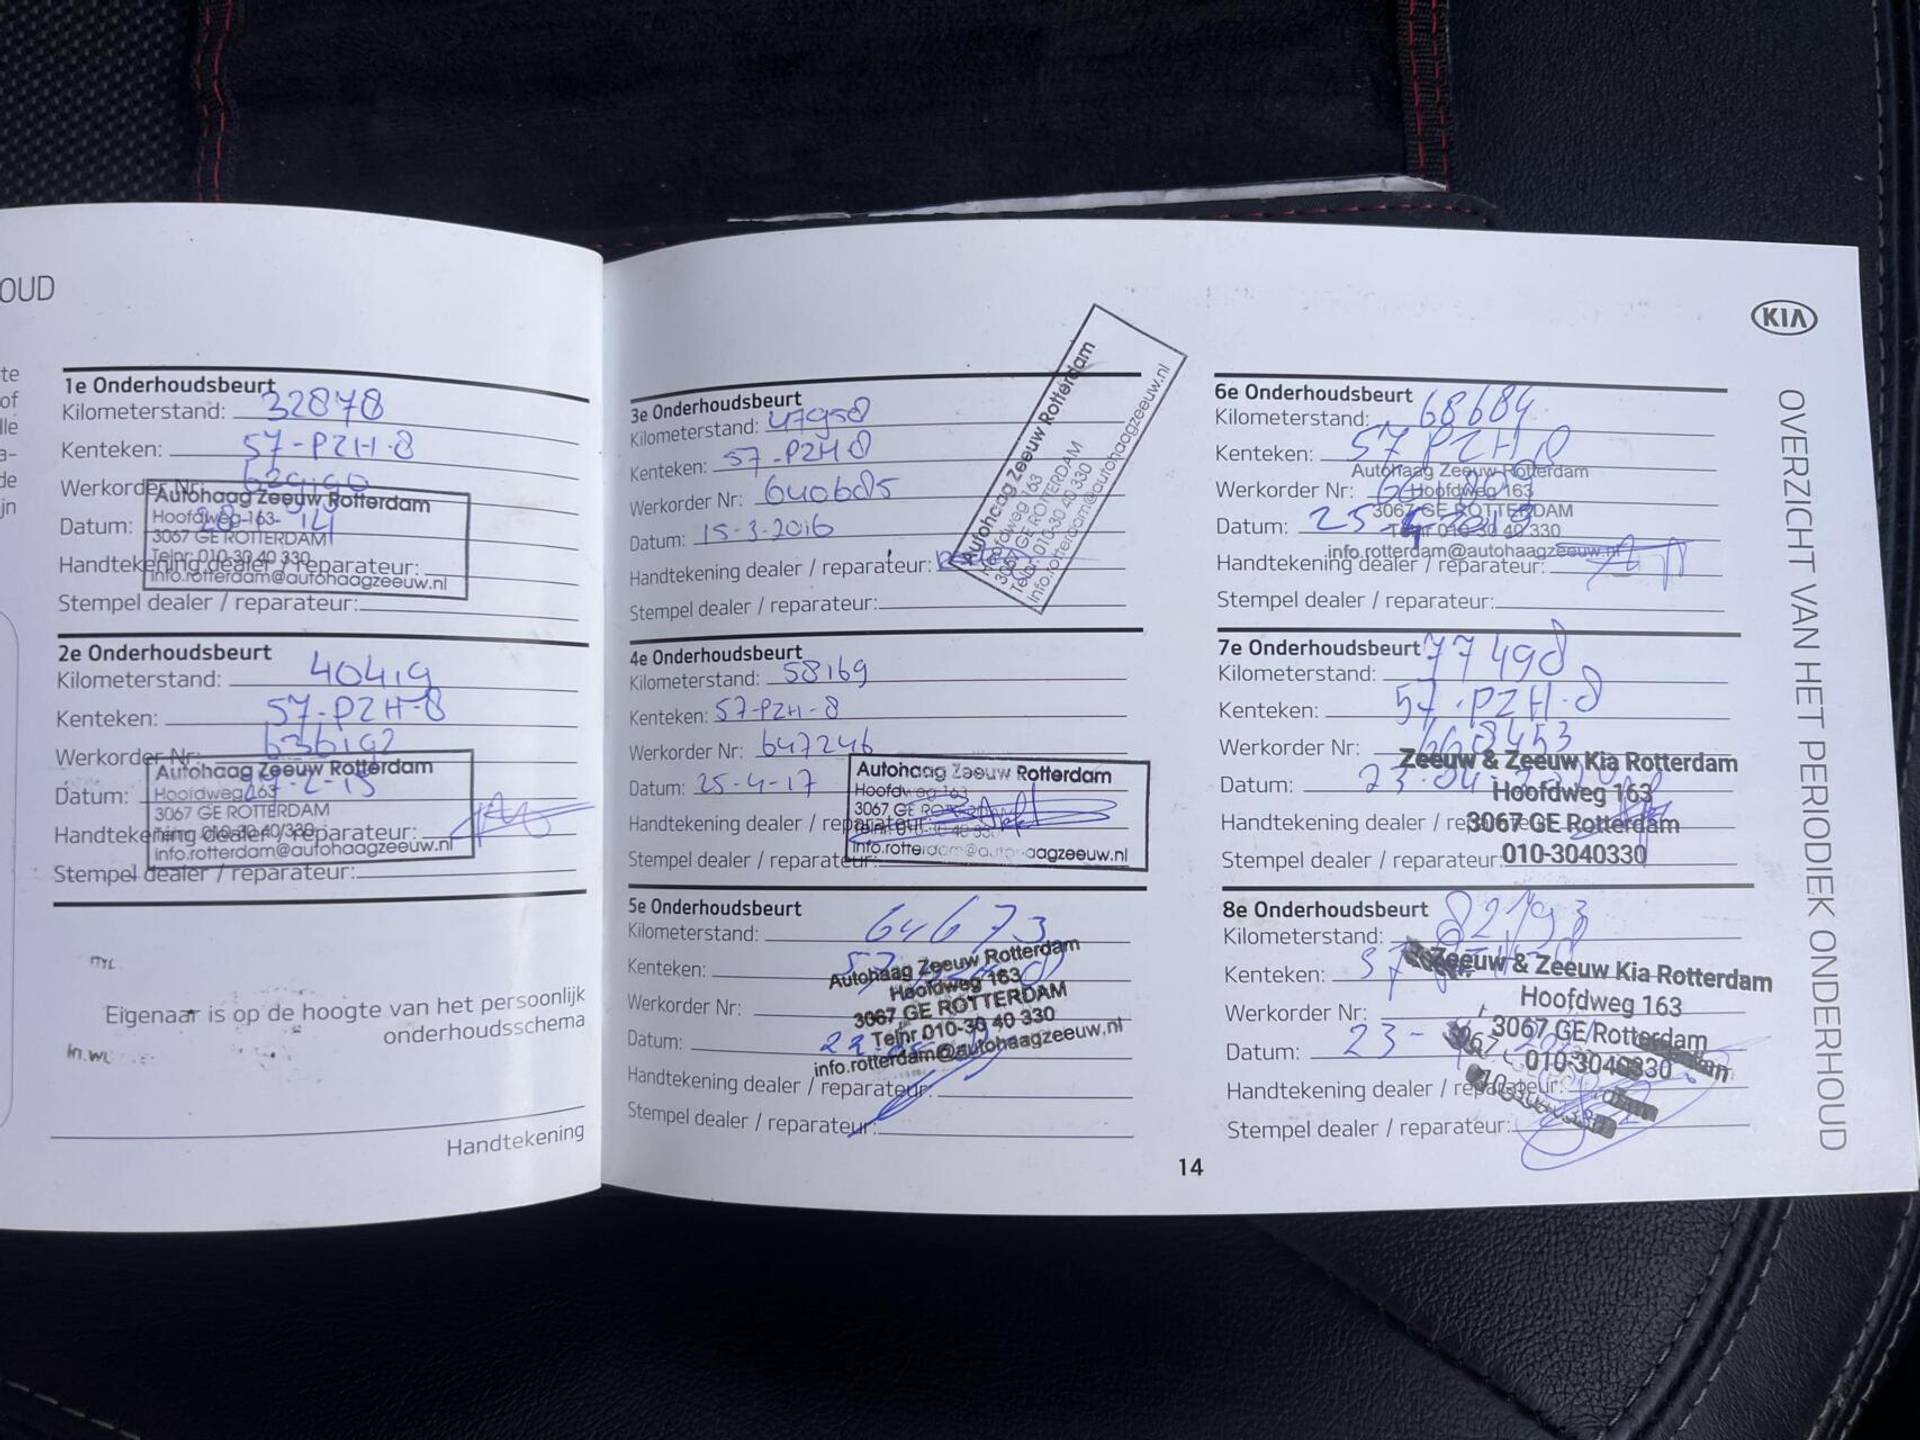 OUD
te
of
lle
a-
de
jn
1e Onderhoudsbeurt
Kilometerstand: 32878
Kenteken: 57-PZH-8
Werkorder Nr:
Autohaag Zeeuw Rotterdam
Hoofdweg 163
Datum: 28 14
3067 GE ROTTERDAM
Telnr: 010-30 40 330
Handtekening dealer / reparateur:
info.rotterdam@autohaagzeeuw.nl
Stempel dealer / reparateur:
2e Onderhoudsbeurt
Kilometerstand: 40419
Kenteken: 57-PZH-8
Werkorder Nr: 636192
Autohaag Zeeuw Rotterdam
Hoofdweg 163
Datum: -2-15
3067 GE ROTTERDAM
Handtekening dealer / reparateur:
Telnr: 010-30 40 330
info.rotterdam@autohaagzeeuw.nl
Stempel dealer / reparateur:
Eigenaar is op de hoogte van het persoonlijk
onderhoudsschema
Handtekening
3e Onderhoudsbeurt
Kilometerstand: 47958
Kenteken: 57-PZH 8
Werkorder Nr: 640685
Datum: 15-3-2016
Handtekening dealer / reparateur:
Stempel dealer / reparateur:
Autohaag Zeeuw Rotterdam
Hoofdweg 163
3067 GE ROTTERDAM
Telnr: 010-30 40 330
info.rotterdam@autohaagzeeuw.nl
4e Onderhoudsbeurt
Kilometerstand: 58169
Kenteken: 57-PZH-8
Werkorder Nr: 647246
Autohaag Zeeuw Rotterdam
Datum: 25-4-17
Hoofdweg 163
3067 GE ROTTERDAM
Handtekening dealer / reparateur:
Telnr: 010-30 40 330
info.rotterdam@autohaagzeeuw.nl
Stempel dealer / reparateur:
5e Onderhoudsbeurt
Kilometerstand: 64673
Kenteken:
Autohaag Zeeuw Rotterdam
Hoofdweg 163
Werkorder Nr:
3067 GE ROTTERDAM
Telnr 010-30 40 330
Datum:
info.rotterdam@autohaagzeeuw.nl
Handtekening dealer / reparateur:
Stempel dealer / reparateur:
14
6e Onderhoudsbeurt
Kilometerstand: 68684
Kenteken: 57 PZH 8
Autohaag Zeeuw Rotterdam
Werkorder Nr:
Hoofdweg 163
3067 GE ROTTERDAM
Datum: 25-4-2019
Telnr 010-30 40 330
info.rotterdam@autohaagzeeuw.nl
Handtekening dealer / reparateur:
Stempel dealer / reparateur:
7e Onderhoudsbeurt
Kilometerstand: 77498
Kenteken: 57-PZH-8
Werkorder Nr: 668453
Zeeuw & Zeeuw Kia Rotterdam
Datum: 23-04
Hoofdweg 163
Handtekening dealer / reparateur:
3067 GE Rotterdam
Stempel dealer / reparateur:
010-3040330
8e Onderhoudsbeurt
Kilometerstand: 82193
Kenteken: 57
Zeeuw & Zeeuw Kia Rotterdam
Hoofdweg 163
Werkorder Nr:
3067 GE Rotterdam
Datum: 23-
010-3040330
Handtekening dealer / reparateur:
Stempel dealer / reparateur:
KIA
OVERZICHT VAN HET PERIODIEK ONDERHOUD